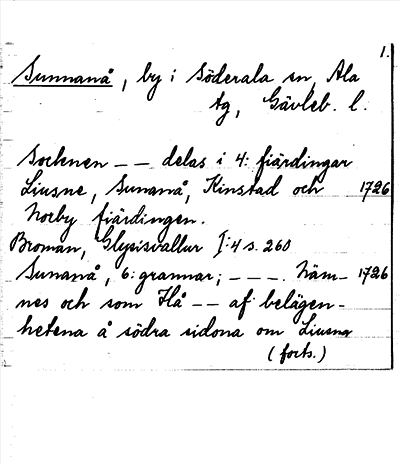 1.
Sunnanå, by i Söderala sn, Ala
tg, Gävleb. l.
Socknen – – delas i 4: fiärdingar
Liusne, Sunanå, Kinstad och 1726
Norby fiärdingen.
Broman, Glysisvallur I:4 s. 260
Sunanå, 6: grannar; – – –. Näm- 1726
nes och som Hå – – af belägen-
hetena å södra sidona om Liusna
(forts.)